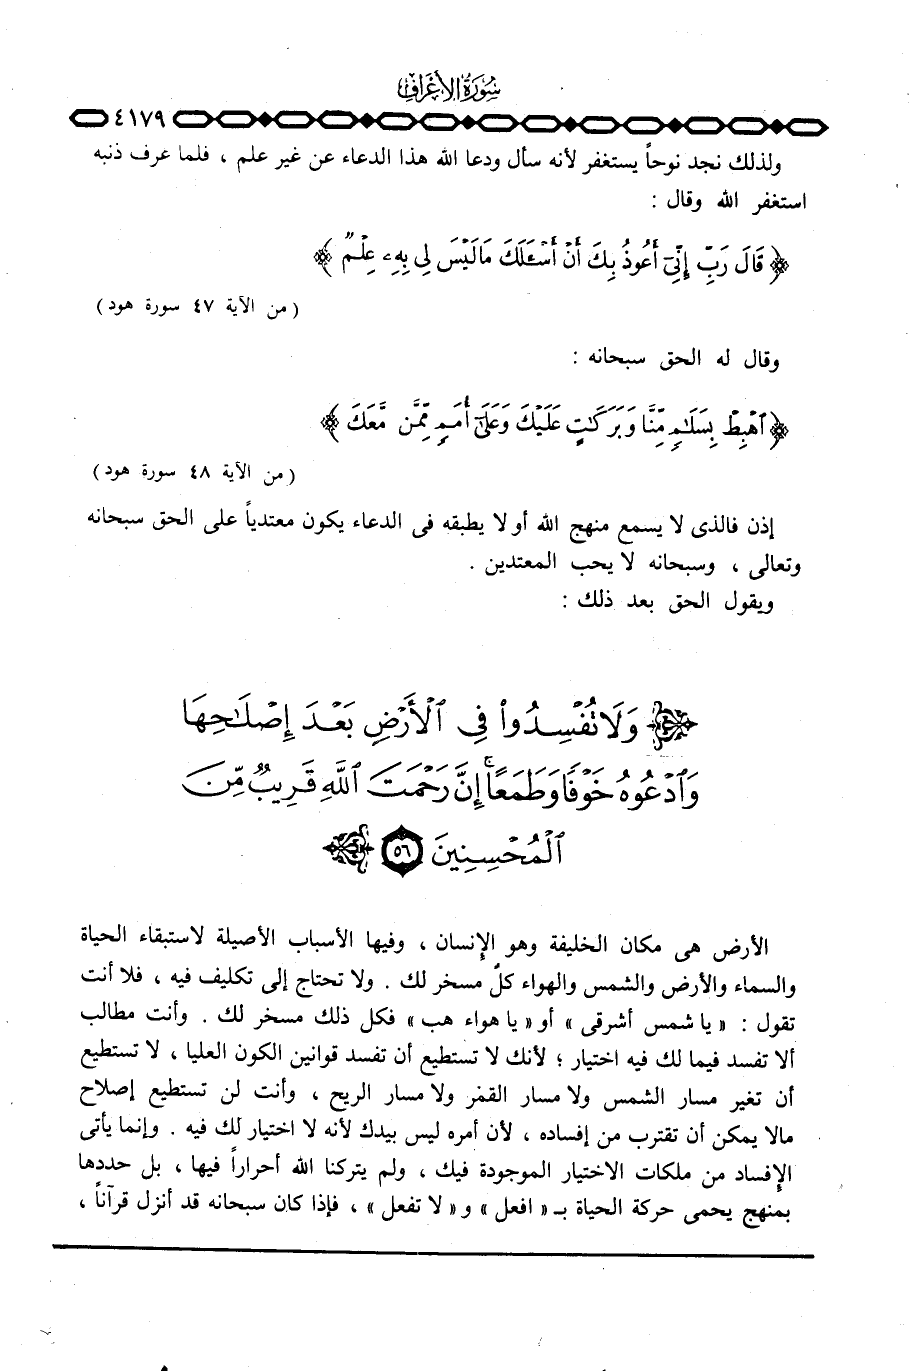 سورة الأعراف
٤١٧٩
ولذلك نجد نوحاً يستغفر لأنه سأل ودعا الله هذا الدعاء عن غير علم ، فلما عرف ذنبه
استغفر الله وقال :
﴿ قَالَ رَبِّ إِنِّىٓ أَعُوذُ بِكَ أَنْ أَسْـَٔلَكَ مَا لَيْسَ لِى بِهِۦ عِلْمٌ ﴾
( من الآية ٤٧ سورة هود )
وقال له الحق سبحانه :
﴿ ٱهْبِطْ بِسَلَـٰمٍ مِّنَّا وَبَرَكَـٰتٍ عَلَيْكَ وَعَلَىٰٓ أُمَمٍ مِّمَّن مَّعَكَ ﴾
( من الآية ٤٨ سورة هود )
إذن فالذى لا يسمع منهج الله أو لا يطبقه فى الدعاء يكون معتدياً على الحق سبحانه
وتعالى ، وسبحانه لا يحب المعتدين .
ويقول الحق بعد ذلك :
﴿ وَلَا تُفْسِدُوا۟ فِى ٱلْأَرْضِ بَعْدَ إِصْلَـٰحِهَا
وَٱدْعُوهُ خَوْفًا وَطَمَعًا ۚ إِنَّ رَحْمَتَ ٱللَّهِ قَرِيبٌ مِّنَ
ٱلْمُحْسِنِينَ ٥٦ ﴾
الأرض هى مكان الخليفة وهو الإنسان ، وفيها الأسباب الأصيلة لاستبقاء الحياة
والسماء والأرض والشمس والهواء كلٌ مسخر لك . ولا تحتاج إلى تكليف فيه ، فلا أنت
تقول : « يا شمس أشرقى » أو « يا هواء هب » فكل ذلك مسخر لك . وأنت مطالب
ألا تفسد فيما لك فيه اختيار ؛ لأنك لا تستطيع أن تفسد قوانين الكون العليا ، لا تستطيع
أن تغير مسار الشمس ولا مسار القمر ولا مسار الريح ، وأنت لن تستطيع إصلاح
مالا يمكن أن تقترب من إفساده ، لأن أمره ليس بيدك لأنه لا اختيار لك فيه . وإنما يأتى
الإفساد من ملكات الاختيار الموجودة فيك ، ولم يتركنا الله أحراراً فيها ، بل حددها
بمنهج يحمى حركة الحياة بـ « افعل » و « لا تفعل » ، فإذا كان سبحانه قد أنزل قرآناً ،